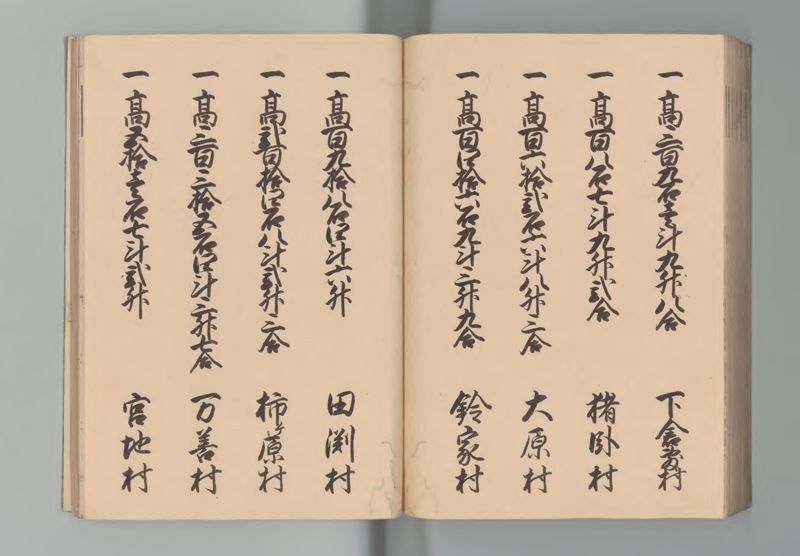 一 髙三百九石壱斗九升八合 下倉敷村
一 髙百八石七斗九升弐合 猪臥村
一 髙百六拾弐石六斗八升三合 大原村
一 髙百四拾六石九斗三升九合 鈴家村
一 髙百九拾八石四斗六升 田渕村
一 髙弐百拾四石八斗弐升三合 柿ヶ原村
一 髙三百三拾五石四斗三升七合 万善村
一 髙五拾壱石七斗弐升 宮地村